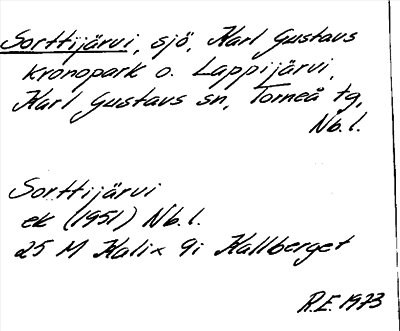 Sorttijärvi, sjö, Karl Gustavs
kronopark o. Lappijärvi,
Karl Gustavs sn, Torneå tg,
Nb.l.
Sorttijärvi
ek (1951) Nb.l.
25 M Kalix 9i Kallberget
R.E. 1973